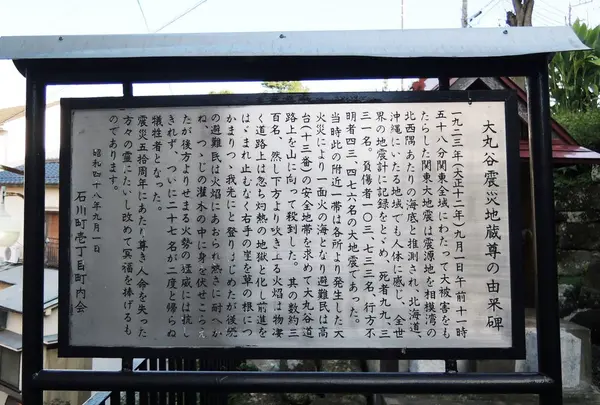 大丸谷震災地蔵尊の由来碑
一九二三年（大正十二年）九月一日午前十一時
五十八分関東全域にわたって大被害をも
たらした関東大地震は震源地を相模湾の
北西隅あたりの海底と推測され、北海道、
沖縄にいたる地域でも人体に感じ、全世
界の地震計に記録をとゞめ、死者九九、三
三一名。負傷者一〇三、七三三名、行方不
明者四三、四七六名の大地震であった。
当時此の附近一帯は各所より発生した大
火災により一面火の海となり避難民は高
台（十三番）の安全地帯を求めて大丸谷道
路上を山に向って殺到した。其の数約三
百名、然し下方より吹き上る火焔は物凄
く道路上は忽ち灼熱の地獄と化し前進を
はゞまれ止むなく右手の崖を草の根につ
かまりつゝ我先にと登りはじめたが後続
の避難民は火焔にあおられ熱さに耐へか
ね、つゝじの灌木の中に身を伏せこらえ
たが後方よりせまる火勢の猛威には抗し
きれず、ついに二十七名が二度と帰らぬ
犠牲者となった。
震災五拾周年にあたり尊き人命を失った
方々の霊にたいし改めて冥福を捧げるも
のであります。
昭和四十八年九月一日
石川町壱丁目町内会